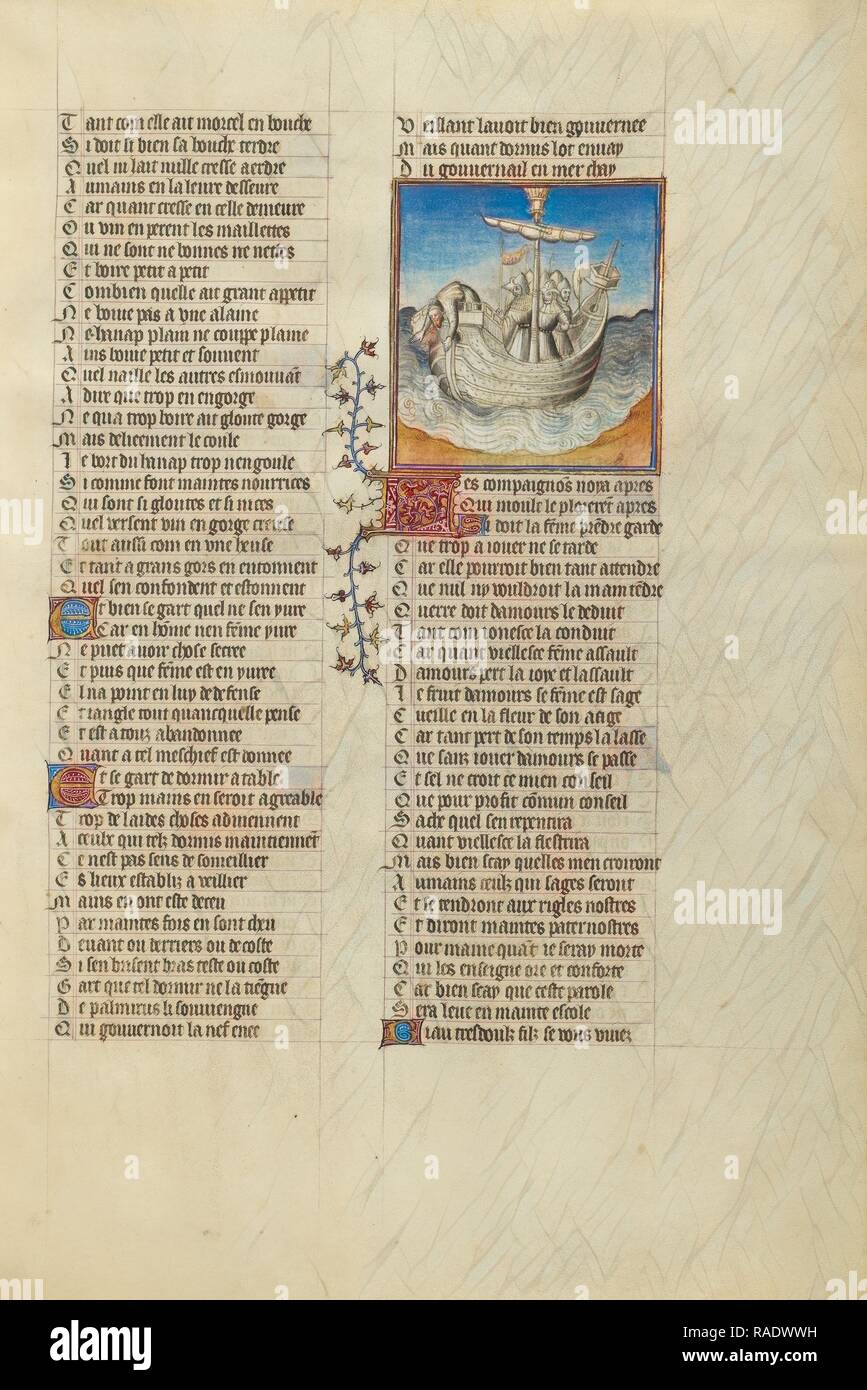 Tant com elle ait morcel en bouche
Si doit si bien sa bouche terdre
Quel ni lait nulle cresse aerdre
Aumains en la leure desseure
Car quant cresse en celle demeure
Ou vin en perent les maillettes
Qui ne sont ne bonnes ne nettes
Et boire petit a petit
Combien quelle ait grant appetit
Ne boiue pas a vne alaine
Ne hanap plain ne couppe plaine
Ains boiue petit et souuent
Quel naille les autres esmouuãt
A dire que trop en engorge
Ne qua trop boire ait gloute gorge
Mais delieement le coule
Le bort du hanap trop nengoule
Si comme font maintes nourrices
Qui sont si gloutes et si nices
Quel versent vin en gorge creuse
Tout aussi com en vne heuse
Et tant a grans gors en entonnent
Quel sen confondent et estonnent
Et bien se gart quel ne sen yure
Car en hõme nen fẽme yure
Ne puet auoir chose secree
Et puis que fẽme est en yuree
El na point en luy de defense
Et iangle tout quancquelle pense
Et est a touz abandonnee
Quant a tel meschief est donnee
Et se gart de dormir a table
Trop mains en seroit agreable
Trop de laides choses aduiennent
A ceulx qui telz dormirs maintiennẽt
Ce nest pas sens de someillier
Es lieux establiz a veillier
Mains en ont este deceu
Par maintes fois en sont cheu
Deuant ou derriere ou de coste
Si sen brisent bras teste ou coste
Gart que tel dormir ne la tiẽgne
De palinurus li souuiengne
Qui gouuernoit la nef enee
Veillant lauoit bien gouuernee
Mais quant dormirs lot enuay
Du gouuernail en mer chay
Des compaignõs noya apres
Qui moult le plorerẽt apres
Si doit la fẽme prẽdre garde
Que trop a iouer ne se tarde
Car elle pourroit bien tant attendre
Que nul ny vouldroit la main tẽdre
Querre doit damours le deduit
Tant com ionesce la conduit
Car quant viellesce fẽme assault
Damours pert la ioye et lassault
Le fruit damours se fẽme est sage
Cueille en la fleur de son aage
Car tant pert de son temps la lasse
Que sanz iouer damours se passe
Et sel ne croit ce mien conseil
Que pour profit cõmun conseil
Sache quel sen repentira
Quant viellesce la flestrira
Mais bien scay quelles men croiront
Aumains ceulz qui sages seront
Et se tendront aux rigles nostres
Et diront maintes paternostres
Pour mame quãt ie seray morte
Qui les enseigne ore et conforte
Car bien scay que ceste parole
Sera leue en mainte escole
Biau tresdoulz filz se vous viuez
alamy
Image ID: RADWWH
www.alamy.com